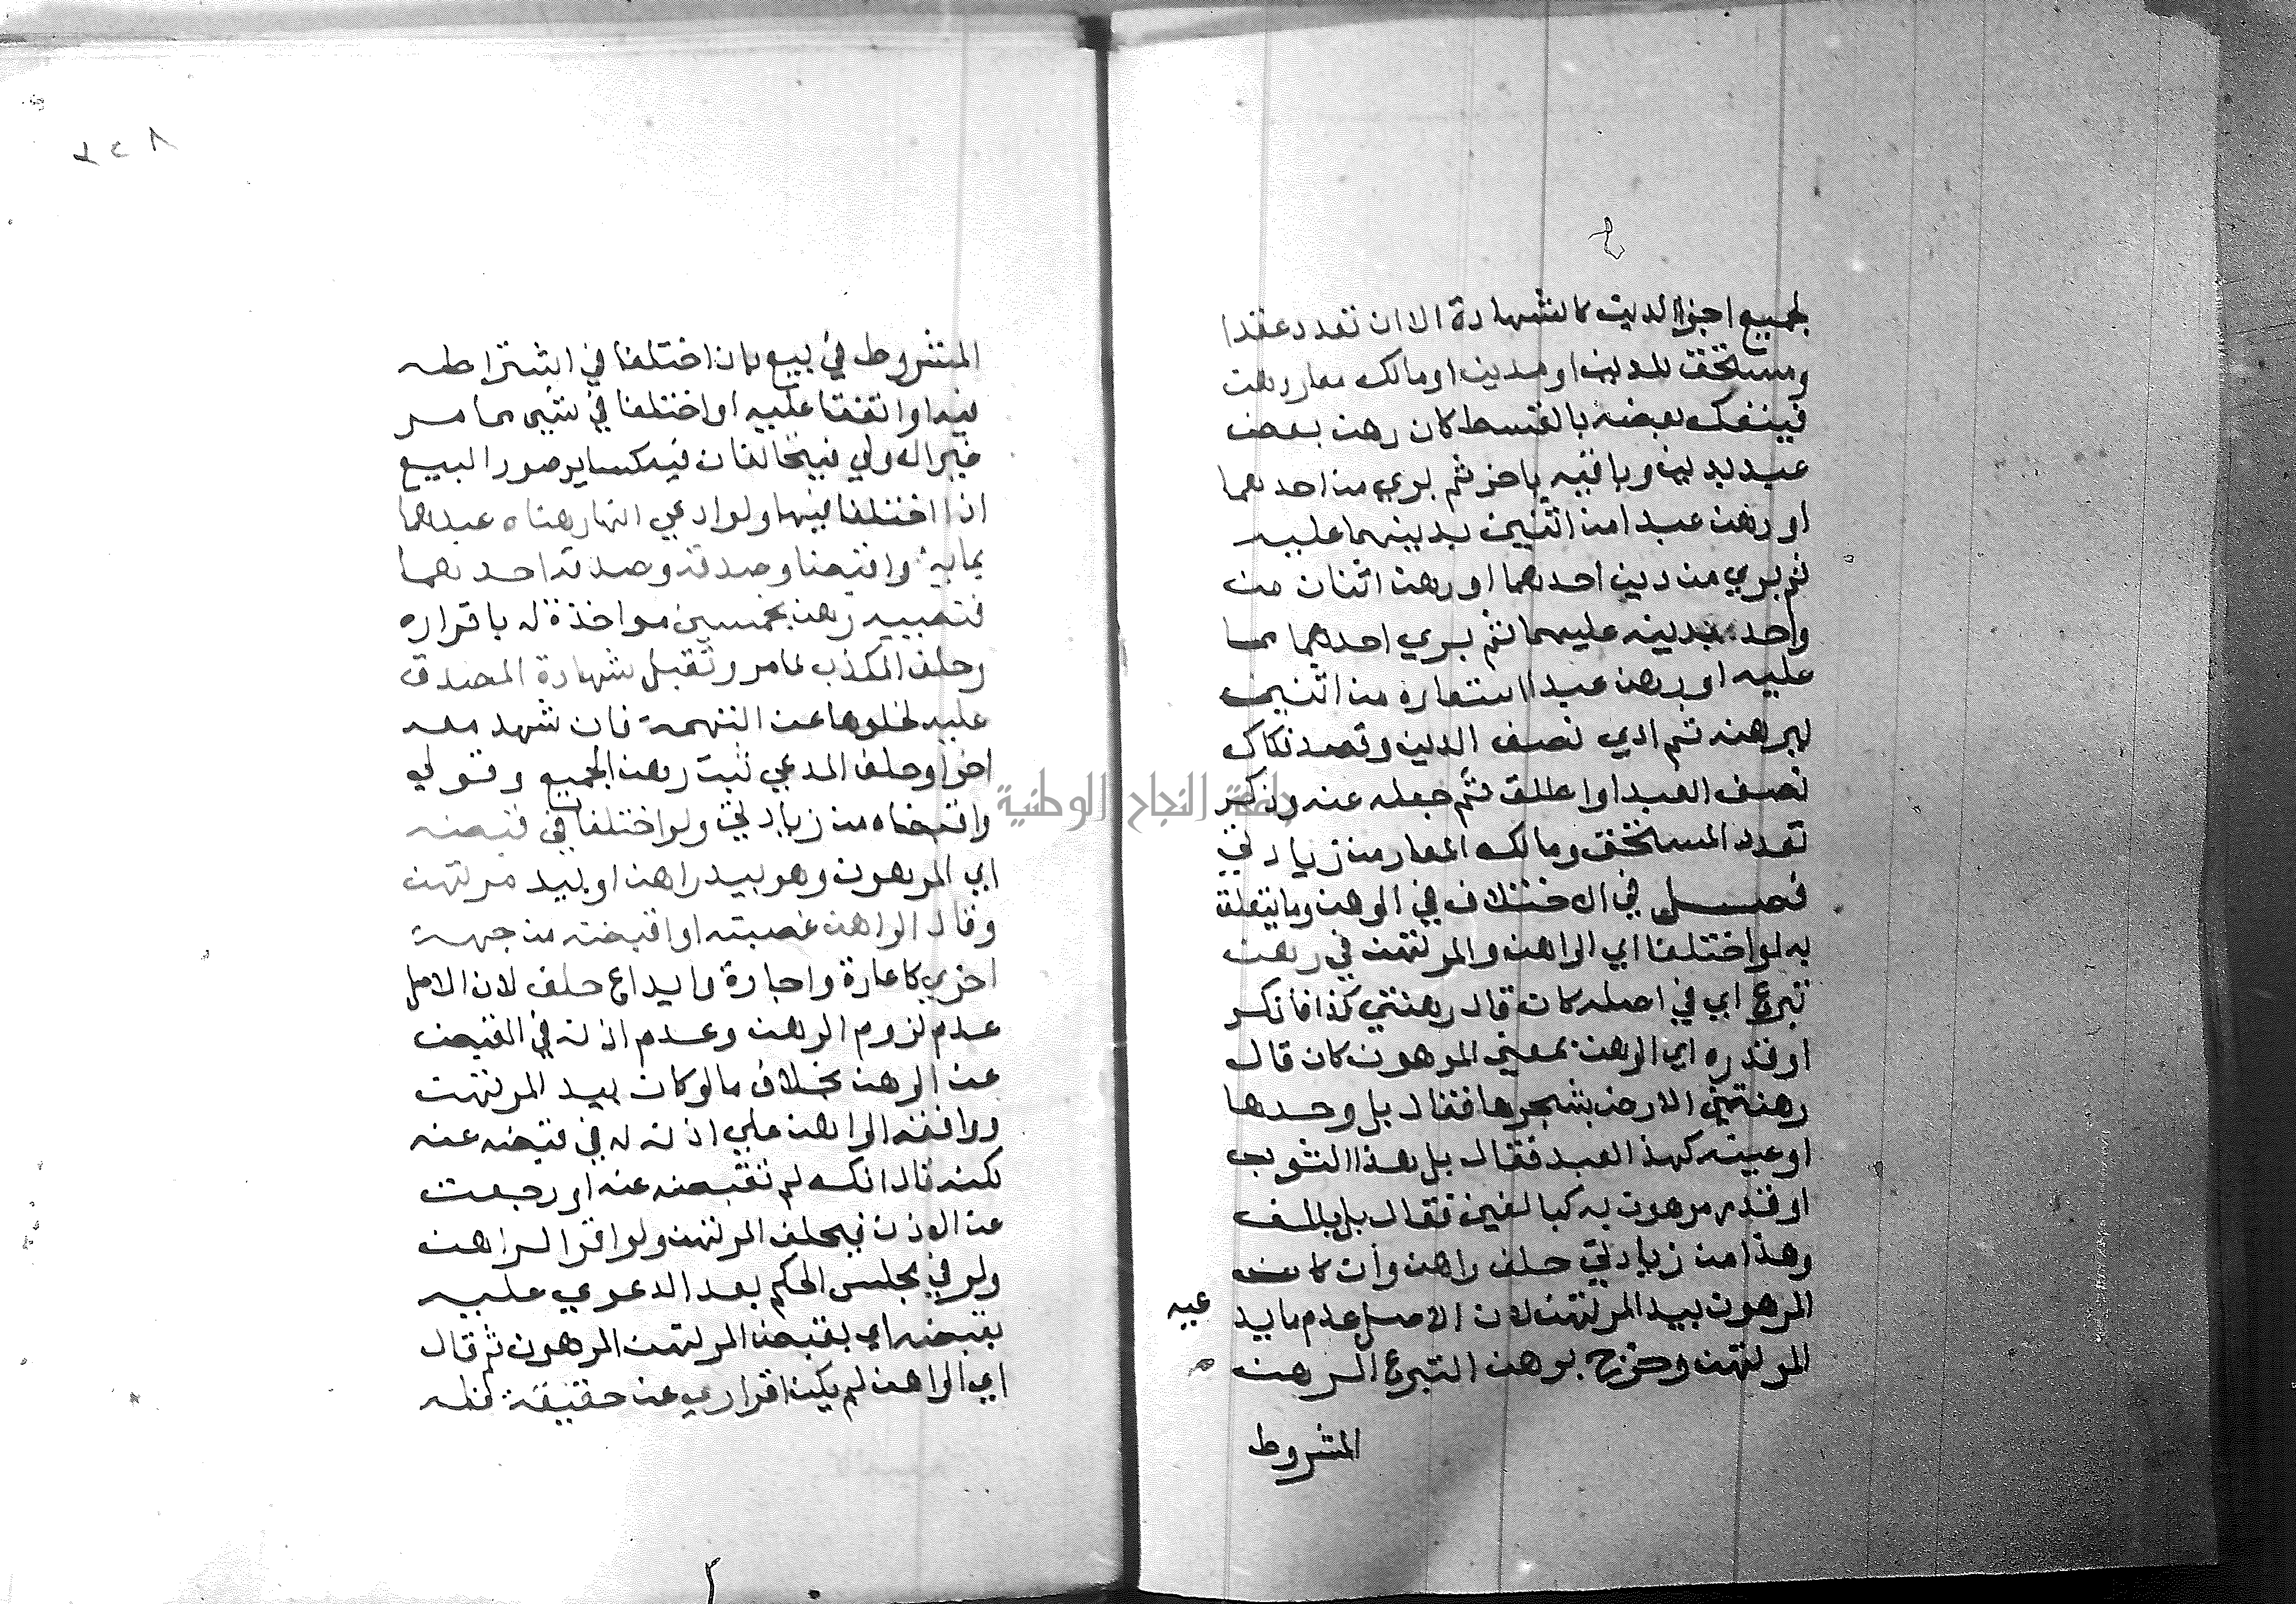 لجميع اجزا الدين كالشهادة الا ان تعدد عقد ا
ومستحق للدين او مدين او مالك معار رهن
فينفك بعضه بالقسط كان رهن بعض
عبد بدين وباقيه باخر ثم بري من احدهما
او رهن عبدا من اثنين بدينهما عليه
ثم بري من دين احدهما او رهن اثنان من
واحد بدينه عليهما ثم بري احدهما مما
عليه او رهن عبدا استعاره من اثنين
ليرهنه ثم ادي نصف الدين وقصد فكاك
نصف العبد او اطلق ثم جعله عنه وذكر
تعدد المستحق ومالك المعار من زيادتي
فصل في الاختلاف في الرهن وما يتعلق
به لو اختلفا اي الراهن والمرتهن في رهن
تبرع اي في اصله كان قال رهنتني كذا فانكر
او قدره اي الرهن بمعني المرهون كان قال
رهنتني الارض بشجرها فقال بل وحدها
او عينه كهذا العبد فقال بل هذا الثوب
او قدر مرهون به كبالفين فقال بل بالف
وهذا من زيادتي حلف راهن وان كان
المرهون بيد المرتهن لان الاصل عدم ما يد
عيه
المرتهن وخرج برهن التبرع الرهن
المشروط
المشروط في بيع بان اختلفا في اشتراطه
فيه او اتفقا عليه او اختلفا في شي مما مر
غير الاولي فيتحالفان فيه كساير صور البيع
اذا اختلفا فيها ولو ادعي انهما رهناه عبدهما
بماية واقبضا وصدقه وصدقه احدهما
فنصيبه رهن بخمسين مواخذة له باقراره
وحلف المكذب لما مر وتقبل شهادة المصدق
عليه لخلوها عن التهمة فان شهد معه
اخر او حلف المدعي ثبت رهن الجميع وقولي
واقبضاه من زيادتي ولو اختلفا في قبضه
اي المرهون وهو بيد راهن او بيد مرتهن
وقال الراهن غصبته او اقبضته من جهة
اخري كاعارة واجارة وايداع حلف لان الاصل
عدم لزوم الرهن وعدم اذنه في القبض
عن الرهن بخلاف ما لو كان بيد المرتهن
ووافقه الراهن علي اذنه له في قبضه عنه
لكنه قال انك لم تقبضه عنه او رجعت
عن الاذن فيحلف المرتهن ولو اقر الراهن
ولو في مجلس الحكم بعد الدعوي عليه
بقبضه اي بقبض المرتهن المرهون ثم قال
اي الراهن لم يكن اقراري عن حقيقة فله
جامعة النجاح الوطنية